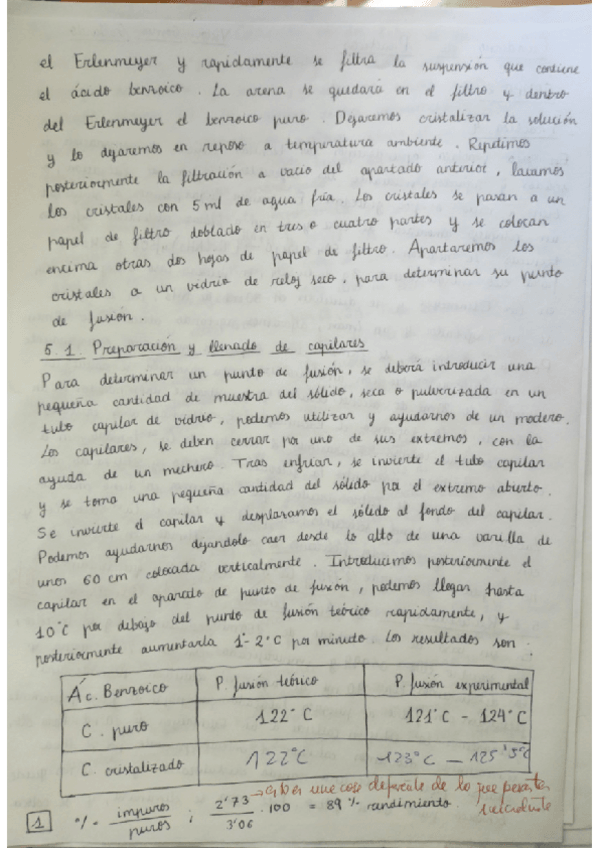 el Erlenmeyer y rapidamente se filtra la suspensión que contiene
el ácido benzoico. La arena se quedará en el filtro y dentro
del Erlenmeyer el benzoico puro. Dejaremos cristalizar la solución
y lo dejaremos en reposo a temperatura ambiente. Repetimos
posteriormente la filtración a vacio del apartado anterior, lavamos
los cristales con 5 ml de agua fría. Los cristales se pasan a un
papel de filtro doblado en tres o cuatro partes y se colocan
encima otras dos hojas de papel de filtro. Apartaremos los
cristales a un vidrio de reloj seco, para determinar su punto
de fusión.
5.1. Preparación y llenado de capilares
Para determinar un punto de fusión, se deberá introducir una
pequeña cantidad de muestra del sólido, seca o pulverizada en un
tubo capilar de vidrio, podemos utilizar y ayudarnos de un mortero.
Los capilares, se deben cerrar por uno de sus extremos, con la
ayuda de un mechero. Tras enfriar, se invierte el tubo capilar
y se toma una pequeña cantidad del sólido por el extremo abierto.
Se invierte el capilar y desplazamos el sólido al fondo del capilar.
Podemos ayudarnos dejandolo caer desde lo alto de una varilla de
unos 60 cm colocada verticalmente. Introducimos posteriormente el
capilar en el aparato de punto de fusión, podemos llegar hasta
10°C por debajo del punto de fusión teórico rapidamente, y
posteriormente aumentarla 1°-2°C por minuto. Los resultados son:
Ác. Benzoico P. fusión teórico P. fusión experimental
C. puro 122°C 121°C - 124°C
C. cristalizado 122°C 123°C - 125'5°C
1 % = impuros / puros ; 2'73 / 3'06 · 100 = 89 % rendimiento.
→ una cosa depende de lo que pesaste